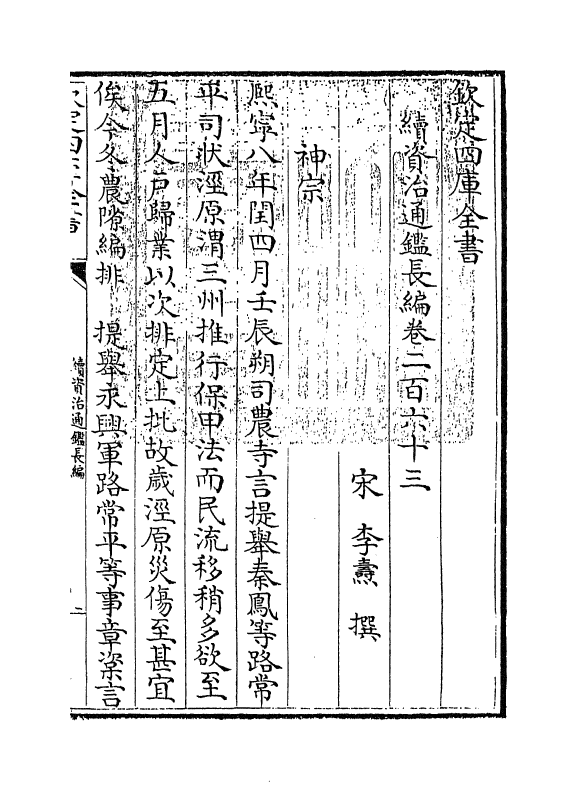 欽定四庫全書
續資治通鑑長編卷二百六十三
宋 李燾 撰
神宗
熙寧八年閏四月壬辰朔司農寺言提舉秦鳳等路常
平司狀涇原渭三州推行保甲法而民流移稍多欲至
五月人戶歸業以次排定上批故歲涇原災傷至甚宜
俟今冬農隙編排 提舉永興軍路常平等事章楶言
欽定四庫全書
續資治通鑑長編